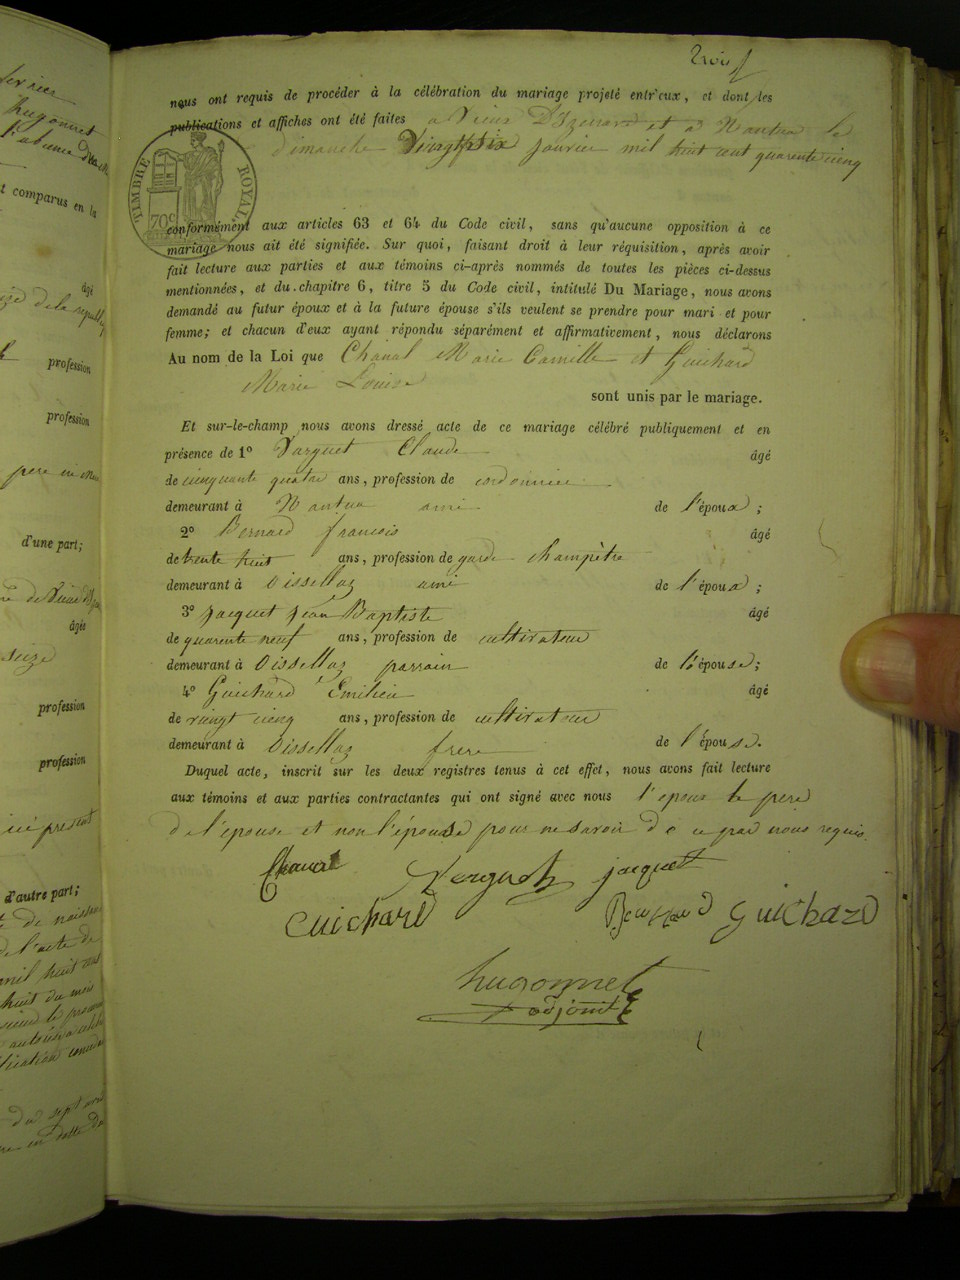 trois
nous ont requis de procéder à la célébration du mariage projeté entr'eux, et dont les
publications et affiches ont été faites a Vieux D'Izenard et a Nantua le
dimanche Vingt six janvier mil huit cent quarente cinq
TIMBRE ROYAL
70c
conformément aux articles 63 et 64 du Code civil, sans qu'aucune opposition à ce
mariage nous ait été signifiée. Sur quoi, faisant droit à leur réquisition, après avoir
fait lecture aux parties et aux témoins ci-après nommés de toutes les pièces ci-dessus
mentionnées, et du chapitre 6, titre 5 du Code civil, intitulé Du Mariage, nous avons
demandé au futur époux et à la future épouse s'ils veulent se prendre pour mari et pour
femme; et chacun d'eux ayant répondu séparément et affirmativement, nous déclarons
Au nom de la Loi que Chanal Marie Camille et Guichard
Marie Louise
sont unis par le mariage.
Et sur-le-champ nous avons dressé acte de ce mariage célébré publiquement et en
présence de 1º Varguet Claude âgé
de cinquante quatre ans, profession de cordonnier
demeurant à Nantua ami de l'époux;
2º Bernard francois âgé
de trente huit ans, profession de garde champètre
demeurant à Oissellaz ami de l'époux;
3º Jacquet Jean Baptiste âgé
de quarente neuf ans, profession de cultivateur
demeurant à Oissellaz parrain de l'épouse;
4º Guichard Emilien âgé
de vingt cinq ans, profession de cultivateur
demeurant à Oissellaz frere de l'épouse.
Duquel acte, inscrit sur les deux registres tenus à cet effet, nous avons fait lecture
aux témoins et aux parties contractantes qui ont signé avec nous l'epoux le pere
de l'épouse et non l'épouse pour ne savoir de ce par nous requis
Chanal Verguet jacquet
Guichard Bernard Guichard
hugonnet
adjoint
fevrier
hugonnet
t comparus en la
âgé
profession
profession
pere
d'une part;
âgée
seize
profession
profession
présent
d'autre part;
de naissance
de l'acte de
mil huit cent
huit du mois